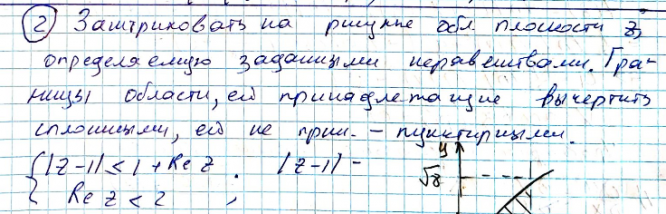 ② Заштриховать на рисунке обл. плоскости z,
определяемую заданными неравенствами. Гра-
ницы области, ей принадлежащие вычертить
сплошными, ей не прин. – пунктирными.
{ |z-1| < 1 + Re z . |z-1| -
Re z < 2 ,
y
√8